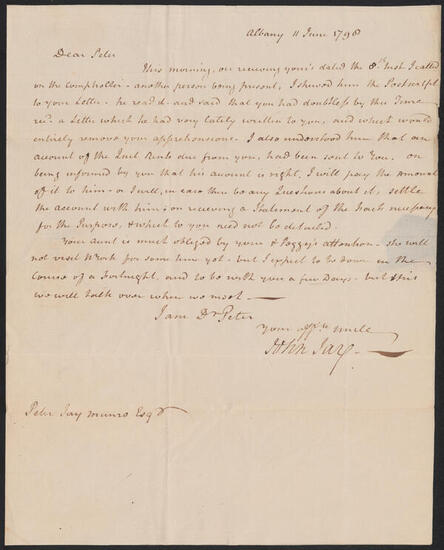 Albany 11 June 1798
Dear Peter
This morning, on receiving your's dated the 8th Inst I called
on the comptroller - another person being present, I shewed him the Postscript
to your Letter. he read it - and said that you had doubtless by this Time
recd. a Letter which he had very lately written to you, and which would
entirely remove your apprehensions. I also understood him that an
account of the Quit Rents due from you, had been sent to you. on
being informed by you that his account is right, I will pay the amount
of it to him - or I will, in case there be any Questions about it, settle
the account with him - on receiving a Statement of the Facts necessary
for the Purpose, & which to you need not be detailed.
Your aunt is much obliged by your & Peggy's attention - she will
not visit NYork for some time yet - but I expect to be down in the
Course of a Fortnight, and to be with you a few Days - but this
we will talk over when we meet -
I am Dr Peter
your affte. uncle
John Jay -
Peter Jay Munro Esqr